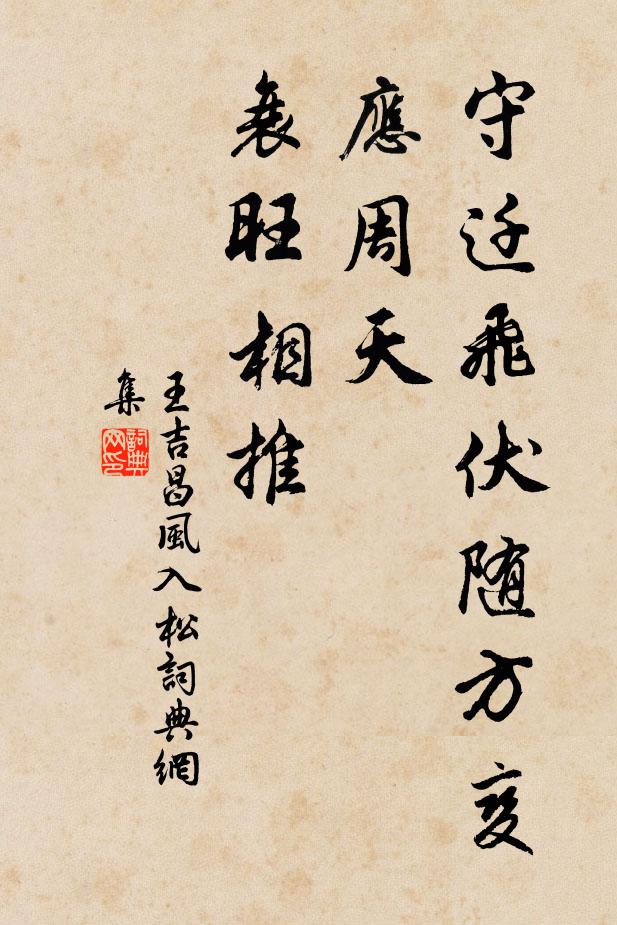 守迁飛伏随方变
應周天
衰旺相推
王吉昌風入松詞典網
集
詞典
网印